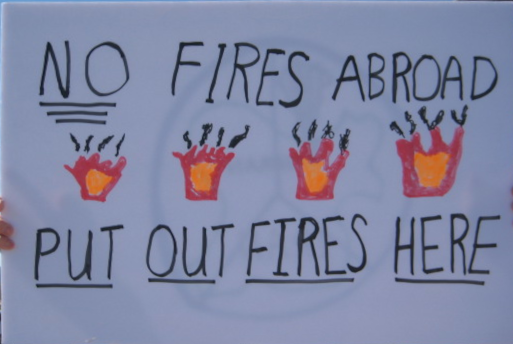 NO FIRES ABROAD
PUT OUT FIRES HERE